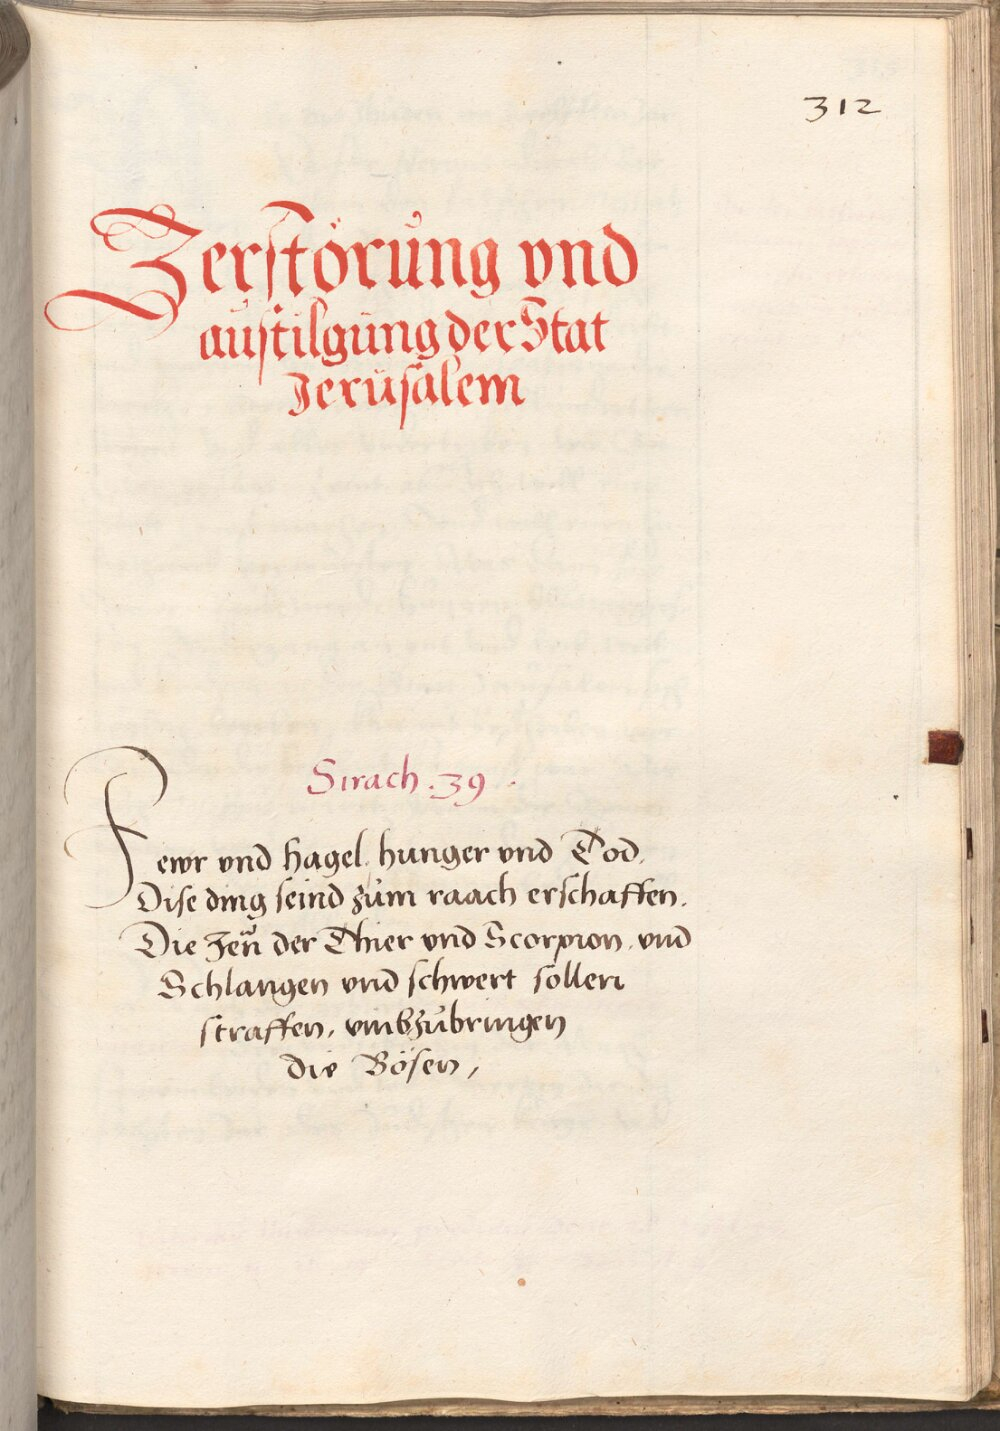 312
Zerstörung vnd
austilgung der Stat
Jerusalem
Sirach . 39 .
Fewr vnd hagel, hunger vnd Tod,
Dise ding seind zum raach erschaffen.
Die zeñ der Thier vnd Scorpion, vnd
Schlangen vnd schwert sollen
straffen, vmbzubringen
die Bösen,